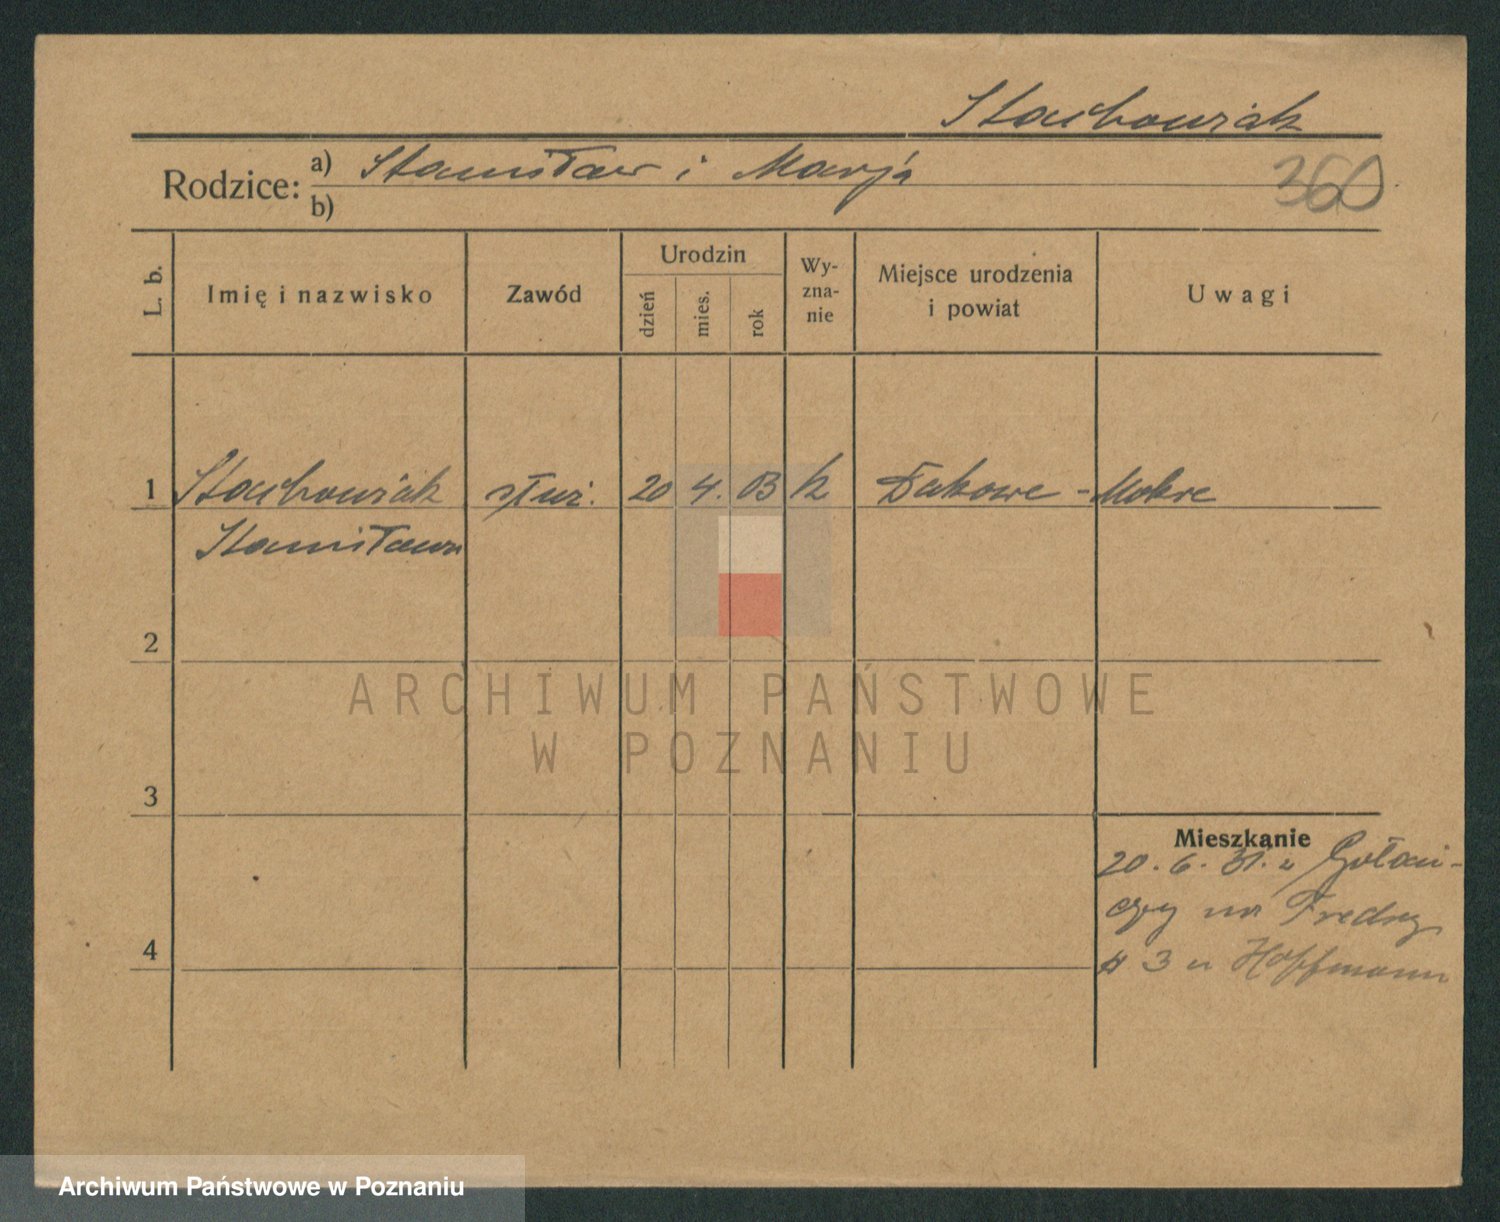 Stachowiak
Rodzice: a) Stanisław i Marja
360
b)
L. b.
Imię i nazwisko
Zawód
Urodzin
dzień
mies.
rok
Wy-
zna-
nie
Miejsce urodzenia
i powiat
Uwagi
1 Stachowiak służ. 20 4. 03 k Dakowe - Mokre
Stanisława
2
ARCHIWUM PAŃSTWOWE
W POZNANIU
3
Mieszkanie
20. 6. 31. z Gołań-
czy na Fredry
3 u Hoffmann
4
Archiwum Państwowe w Poznaniu